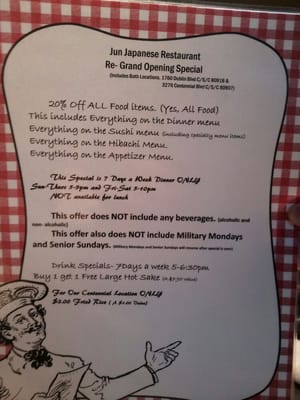 Jun Japanese Restaurant
Re- Grand Opening Special
(Includes Both Locations, 1760 Dublin Blvd C/S/C 80918 &
3276 Centennial Blvd C/S/C 80907)
20% Off ALL Food items. (Yes, All Food)
This includes Everything on the Dinner menu
Everything on the Sushi menu (including specialty menu items)
Everything on the Hibachi Menu.
Everything on the Appetizer Menu.
This Special is 7 Days a Week Dinner ONLY
Sun-Thurs 5-9pm and Fri-Sat 5-10pm
NOT available for lunch
This offer does NOT include any beverages. (alcoholic and
non- alcoholic)
This offer also does NOT include Military Mondays
and Senior Sundays. (Military Mondays and Senior Sundays will resume after special is over)
Drink Specials- 7Days a week 5-6:30pm
Buy 1 get 1 Free Large Hot Sake (A $7.50 value)
For Our Centennial Location ONLY
$1.00 Fried Rice ( A $2.00 Value)